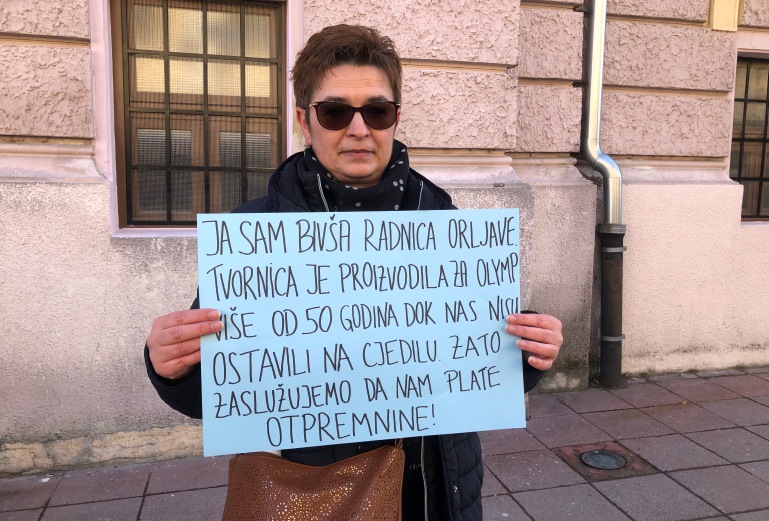 JA SAM BIVŠA RADNICA ORLJAVE.
TVORNICA JE PROIZVODILA ZA OLYMP
VIŠE OD 50 GODINA DOK NAS NISU
OSTAVILI NA CJEDILU. ZATO
ZASLUŽUJEMO DA NAM PLATE
OTPREMNINE!